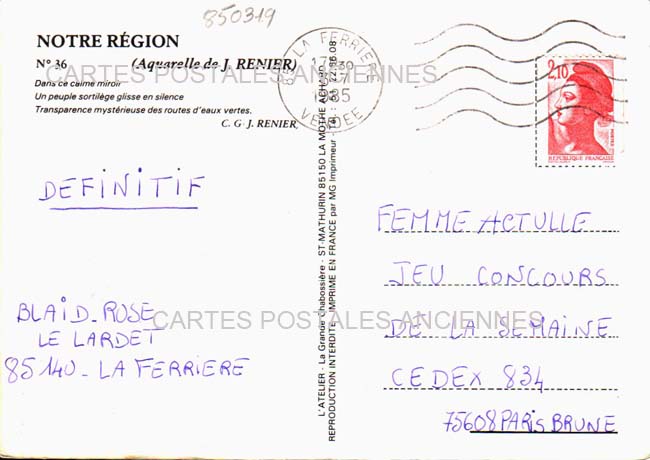 850319
NOTRE RÉGION
N° 36 (Aquarelle de J. RENIER)
Dans ce calme miroir
Un peuple sortilège glisse en silence
Transparence mystérieuse des routes d'eaux vertes.
C. G. J. RENIER,
CARTES POSTALES ANCIENNES
85 LA FERRIERE
1985
VENDEE
2,10
REPUBLIQUE FRANÇAISE
DEFINITIF
BLAID_ROSE
LE LARDET
85140_LA FERRIERE
CARTES POSTALES ANCIENNES
L'ATELIER - La Grande Chabossière - ST-MATHURIN 85150 LA MOTHE ACHARD
REPRODUCTION INTERDITE - IMPRIMÉ EN FRANCE par MG Imprimeur
FEMME ACTULLE
JEU CONCOURS
DE LA SEMAINE
CEDEX 834
75608 PARIS BRUNE